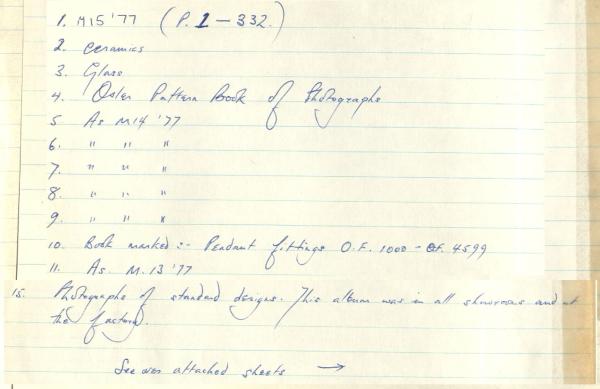 1. M15 '77 (P. 1 - 332.)
2. Ceramics
3. Glass
4. Osler Pattern Book of Photographs
5 As M14 '77
6. " " "
7. " " "
8. " " "
9. " " "
10. Book marked :- Pendant fittings O.F. 1000 - OF. 4599
11. As. M. 13 '77
15. Photographs of standard designs. This album was in all showrooms and at
the factory.
See attached sheets →